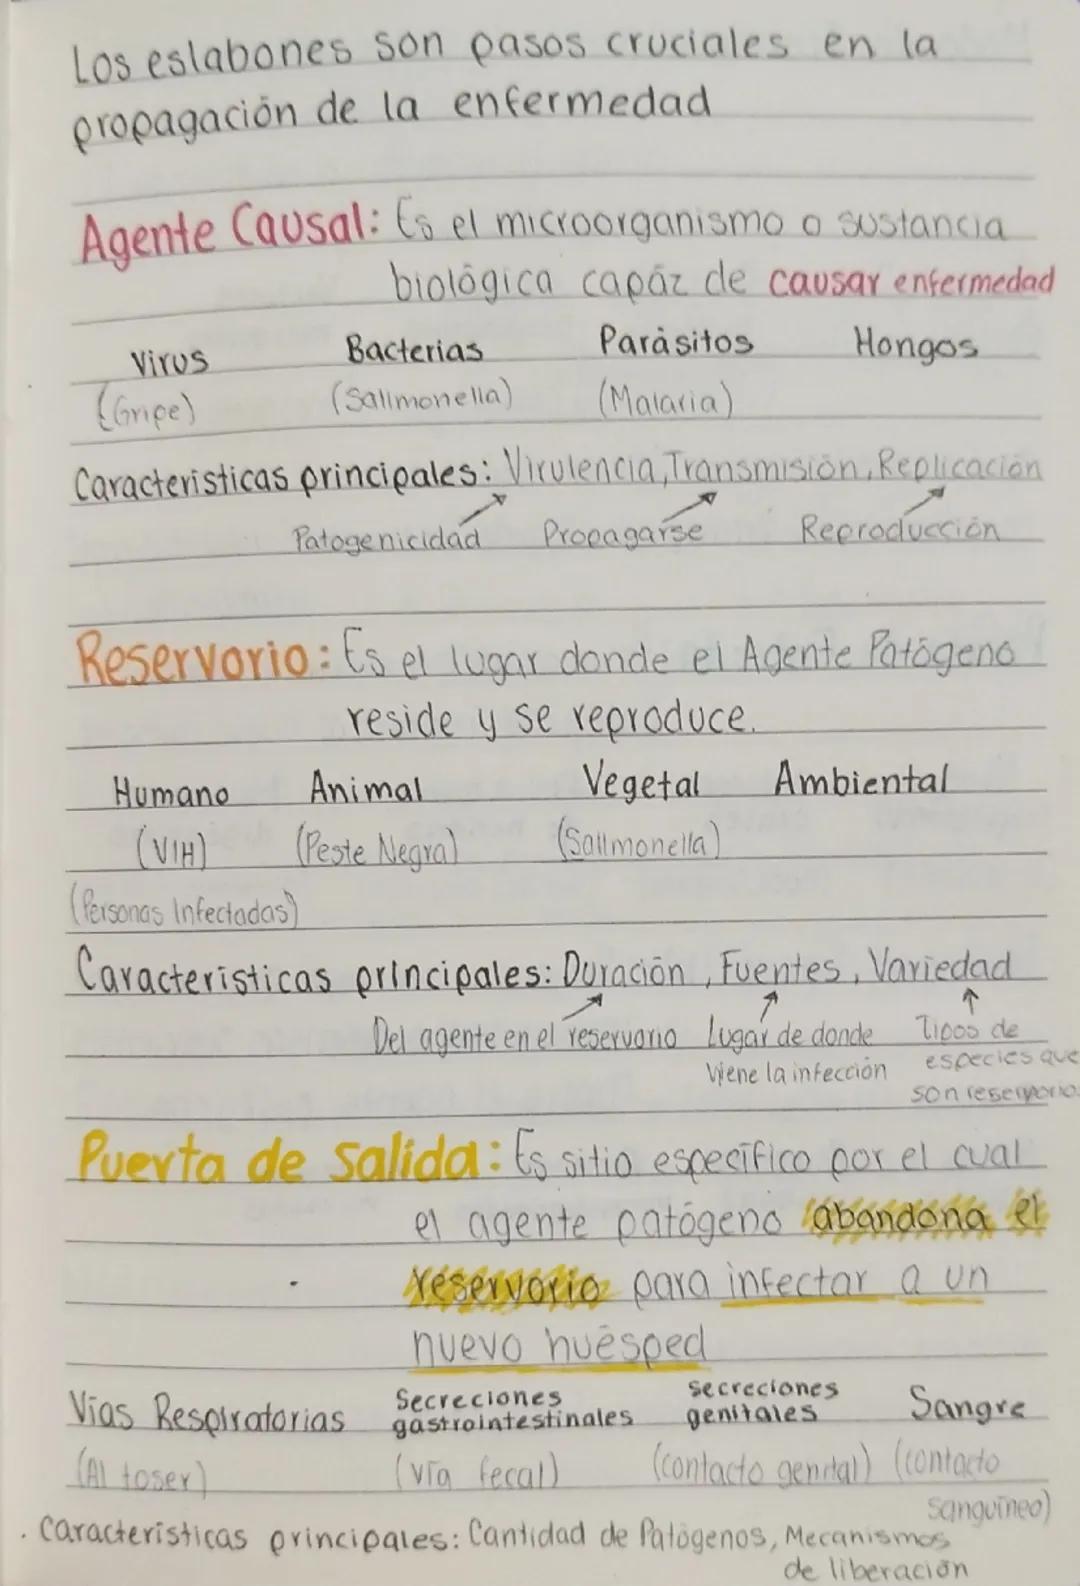 Los eslabones son pasos cruciales en la
propagación de la enfermedad
Agente Causal: Es el microorganismo o sustancia
biológica capáz de causar enfermedad
Virus Bacterias Parásitos Hongos
(Gripe) (Sallmonella) (Malaria)
Caracteristicas principales: Virulencia, Transmisión, Replicación
Patogenicidad Propagarse Reproducción
Reservorio: Es el lugar donde el Agente Patógeno
reside y se reproduce.
Humano Animal Vegetal Ambiental
(VIH) (Peste Negra) (Sallmonella)
(Personas Infectadas)
Caracteristicas principales: Duración, Fuentes, Variedad
Del agente en el reservorio Lugar de donde Tipos de
viene la infección especies que
son reservorio.
Puerta de salida: Es sitio específico por el cual
el agente patógeno abandona el
reservorio para infectar a un
nuevo huésped
Vías Respiratorias Secreciones gastrointestinales secreciones genitales Sangre
(Al toser) (vía fecal) (contacto genital) (contacto
sanguíneo)
. Caracteristicas principales: Cantidad de Patógenos, Mecanismos
de liberación